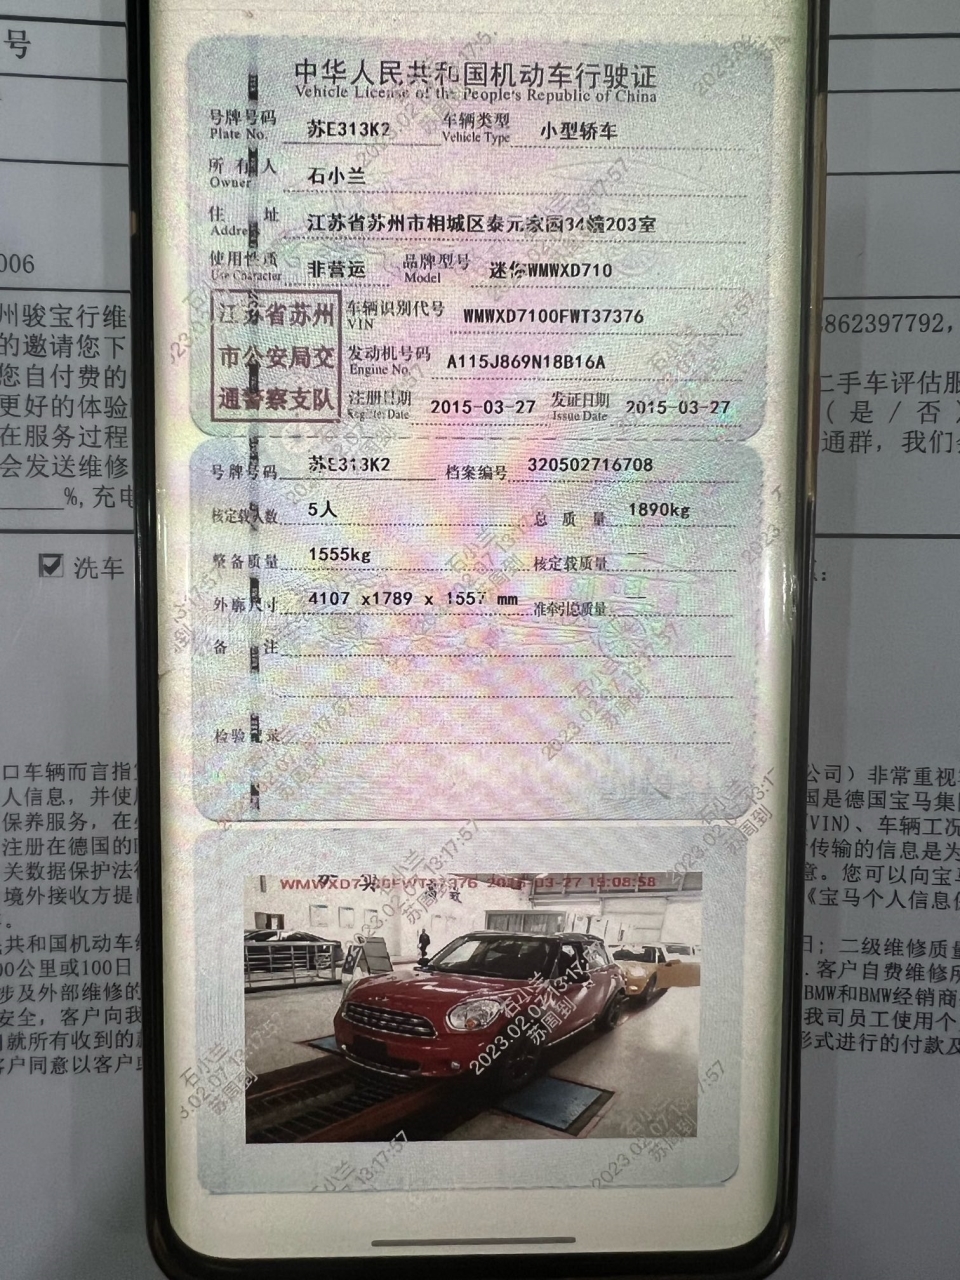 中华人民共和国机动车行驶证
Vehicle License of the People's Republic of China
号牌号码 苏E313K2 车辆类型 小型轿车
Plate No. Vehicle Type
所有人 石小兰
Owner
住址 江苏省苏州市相城区泰元家园34幢203室
Address
使用性质 非营运 品牌型号 迷你WMWXD710
Use Character Model
江苏省苏州
市公安局交
通警察支队
车辆识别代号 WMWXD7100FWT37376
VIN
发动机号码 A115J869N18B16A
Engine No.
注册日期 2015-03-27 发证日期 2015-03-27
Register Date Issue Date
号牌号码 苏E313K2 档案编号 320502716708
核定载人数 5人 总质量 1890kg
整备质量 1555kg 核定载质量 --
外廓尺寸 4107 x1789 x 1557 mm 准牵引总质量 --
备注
检验记录
WMWXD7100FWT37376 2015-03-27 15:08:58
石小兰
2023.02.07 13:17:57
苏周到
号
006
州骏宝行维
的邀请您下
您自付费的
更好的体验
在服务过程
会发送维修
%,充电
洗车
862397792,
二手车评估服
(是/否)
通群，我们会
口车辆而言指
人信息，并使用
保养服务，在
注册在德国的
关数据保护法律
境外接收方提
共和国机动车维
00公里或100日
涉及外部维修的
安全，客户向我
就所有收到的
客户同意以客户
公司）非常重视
国是德国宝马集团
(VIN)、车辆工况
传输的信息是为
意。您可以向宝马
《宝马个人信息
日；二级维修质量
.客户自费维修所
BMW和BMW经销商
我司员工使用个
形式进行的付款及